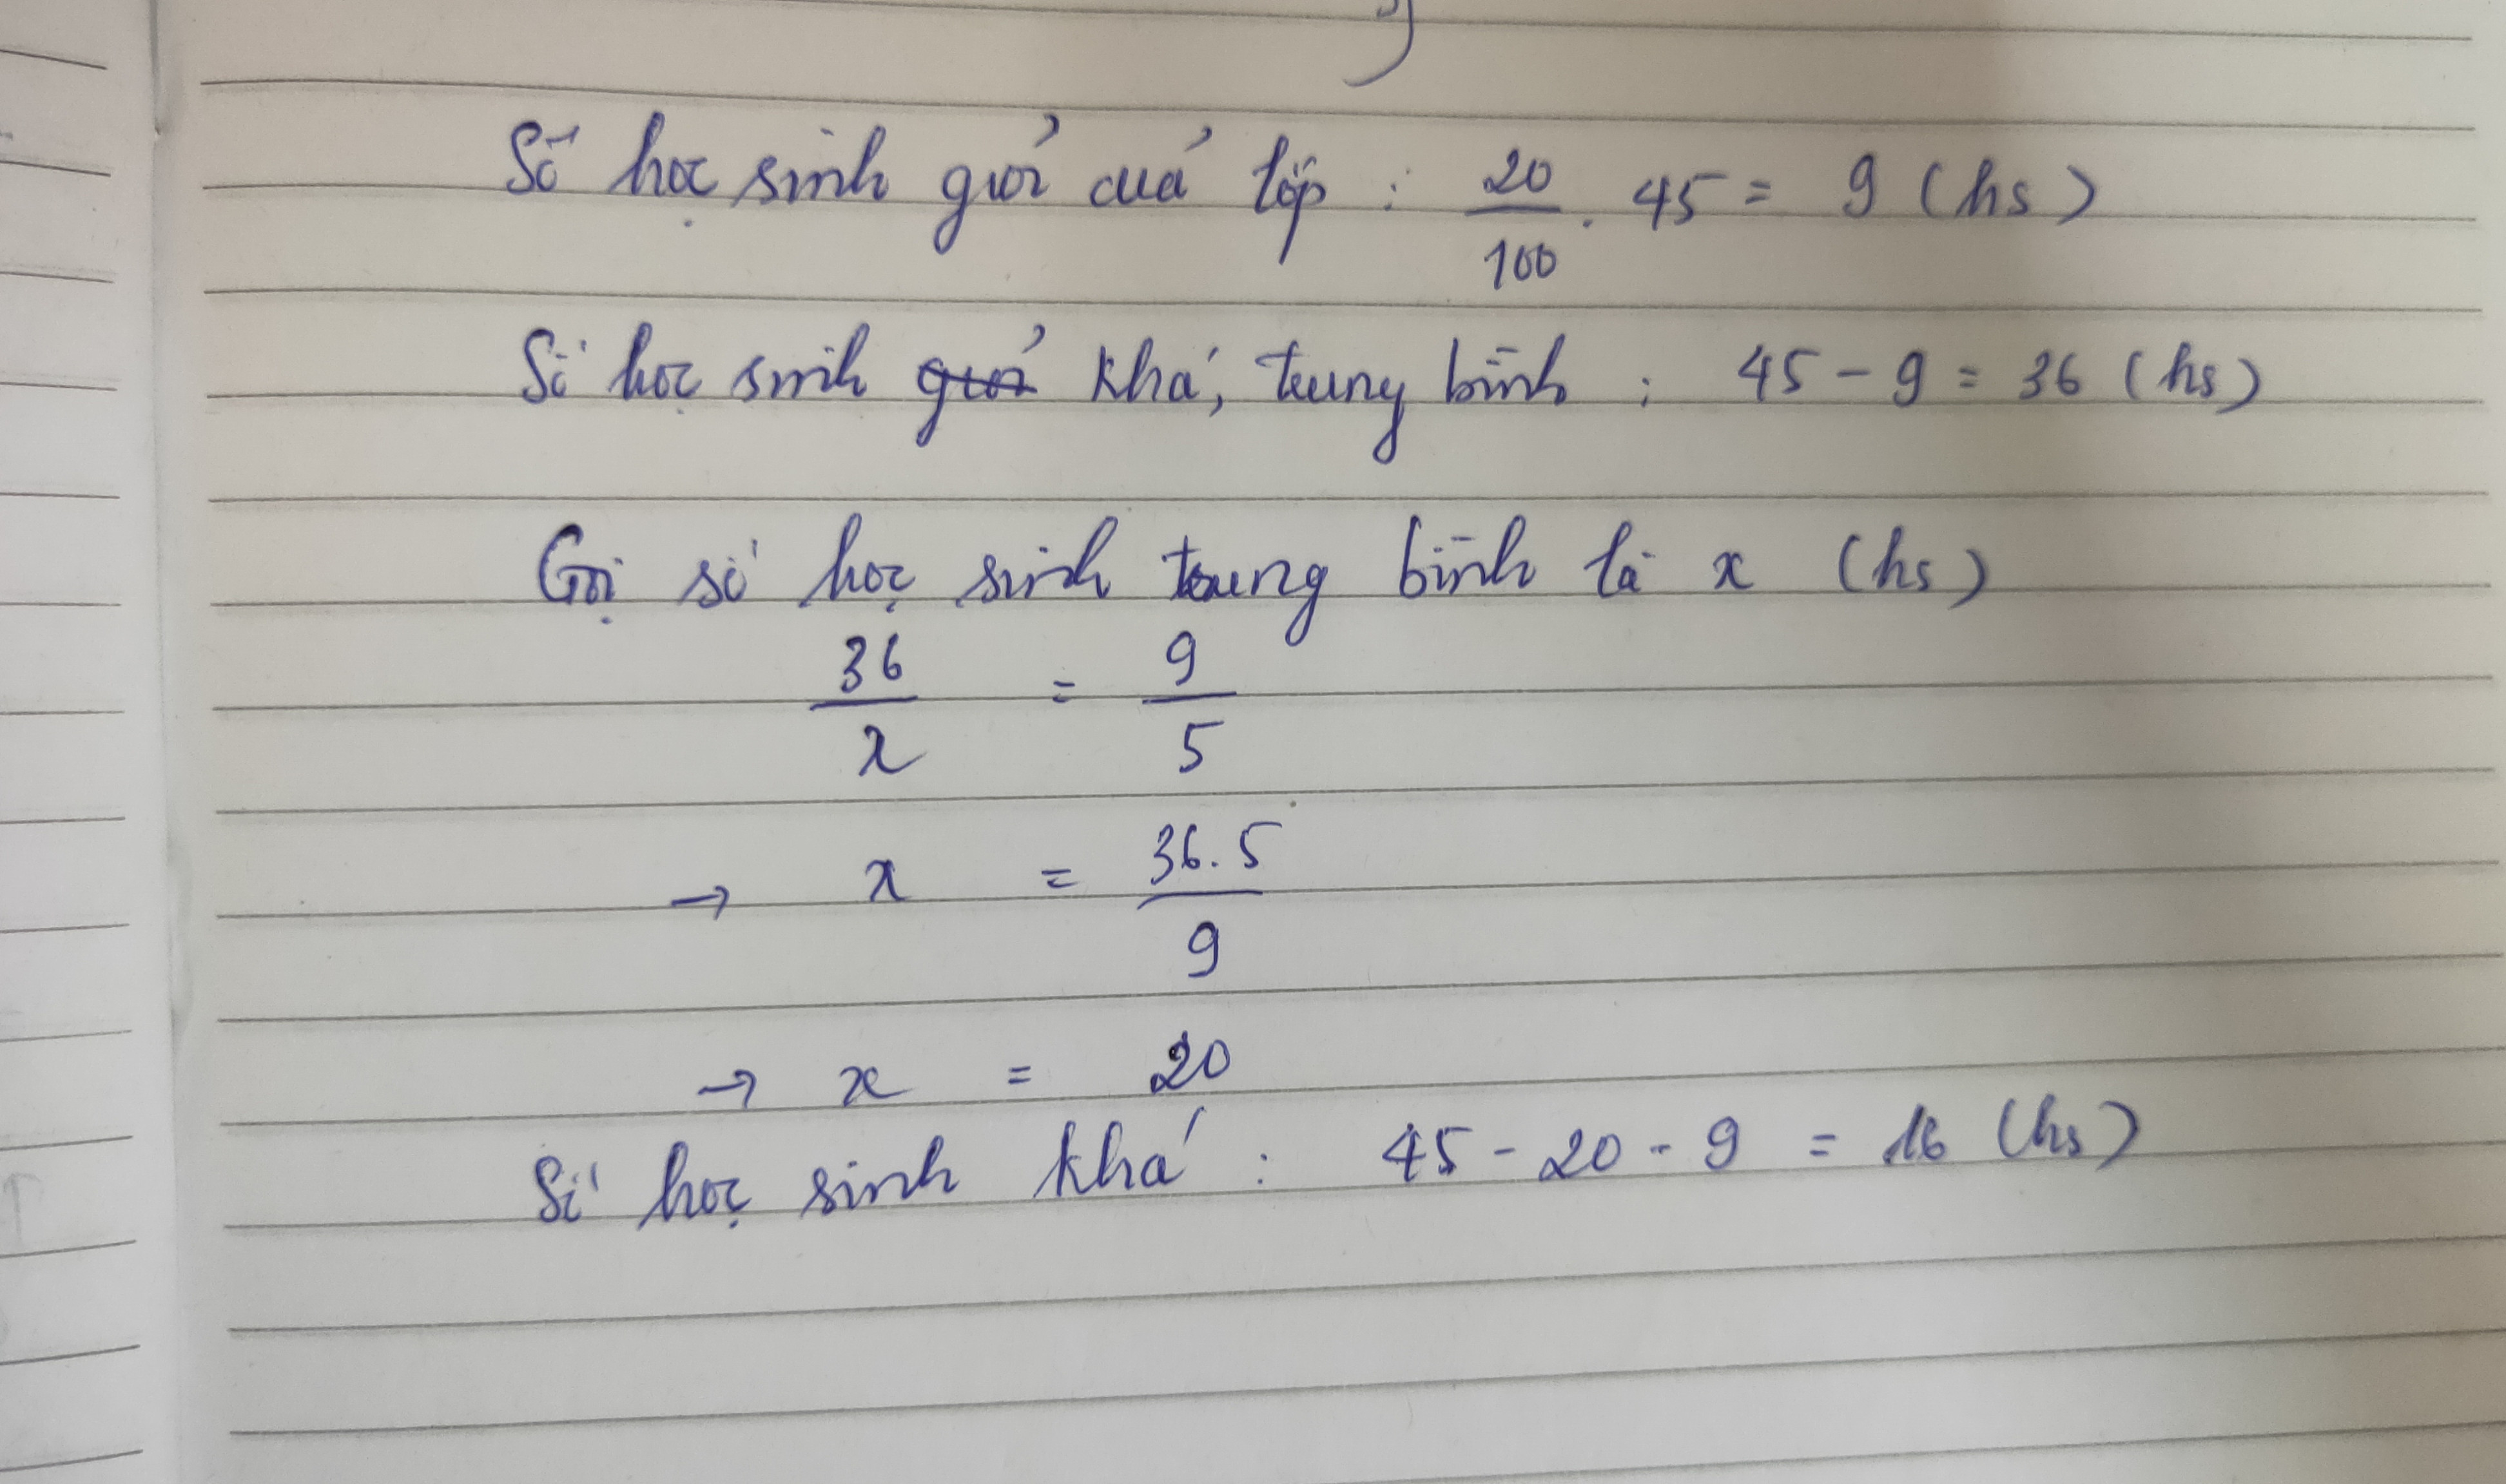 Số học sinh giỏi của lớp : 20/100 . 45 = 9 (hs)
Số học sinh giỏi khá, trung bình : 45 - 9 = 36 (hs)
Gọi số học sinh trung bình là x (hs)
36/x = 9/5
→ x = 36.5/9
→ x = 20
Số học sinh khá : 45 - 20 - 9 = 16 (hs)